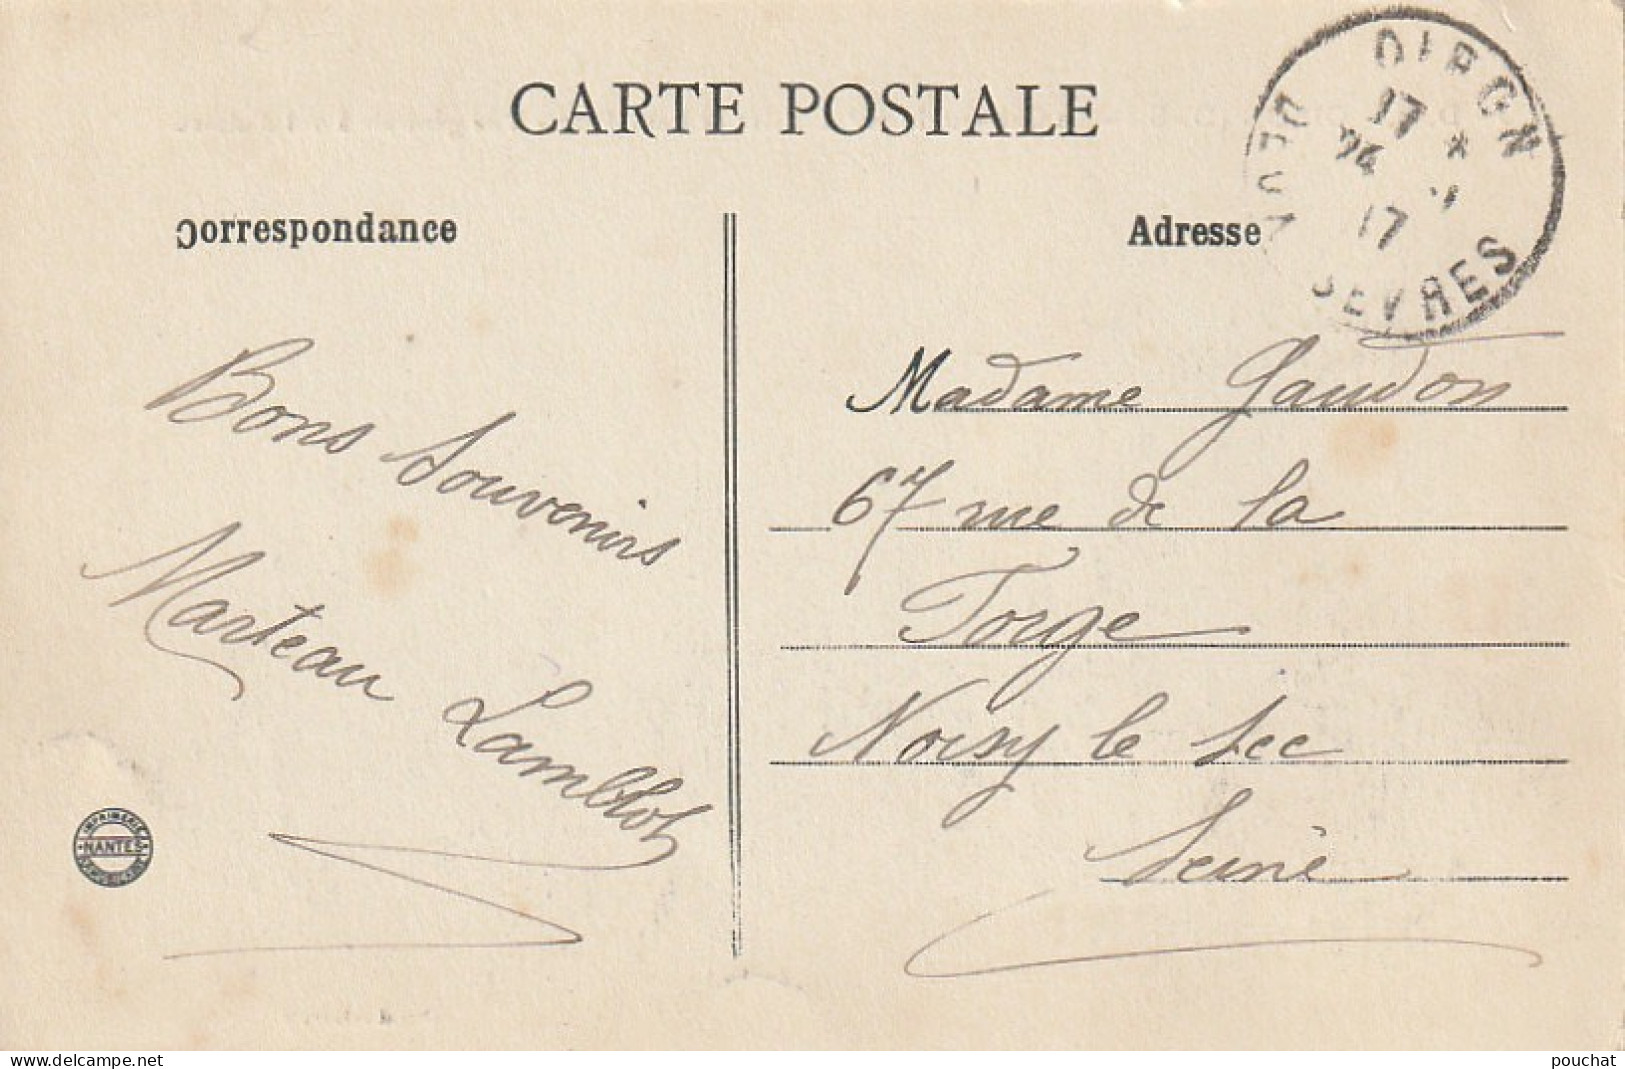 CARTE POSTALE
Correspondance
Adresse
DIRON
17 *
24
17
SEVRES
Bons Souvenirs
Marteau Lamblot
Madame Gaudon
67 rue de la
Forge
Noisy le Sec
Seine
IMPRIMERIE
NANTES
www.delcampe.net
pouchat